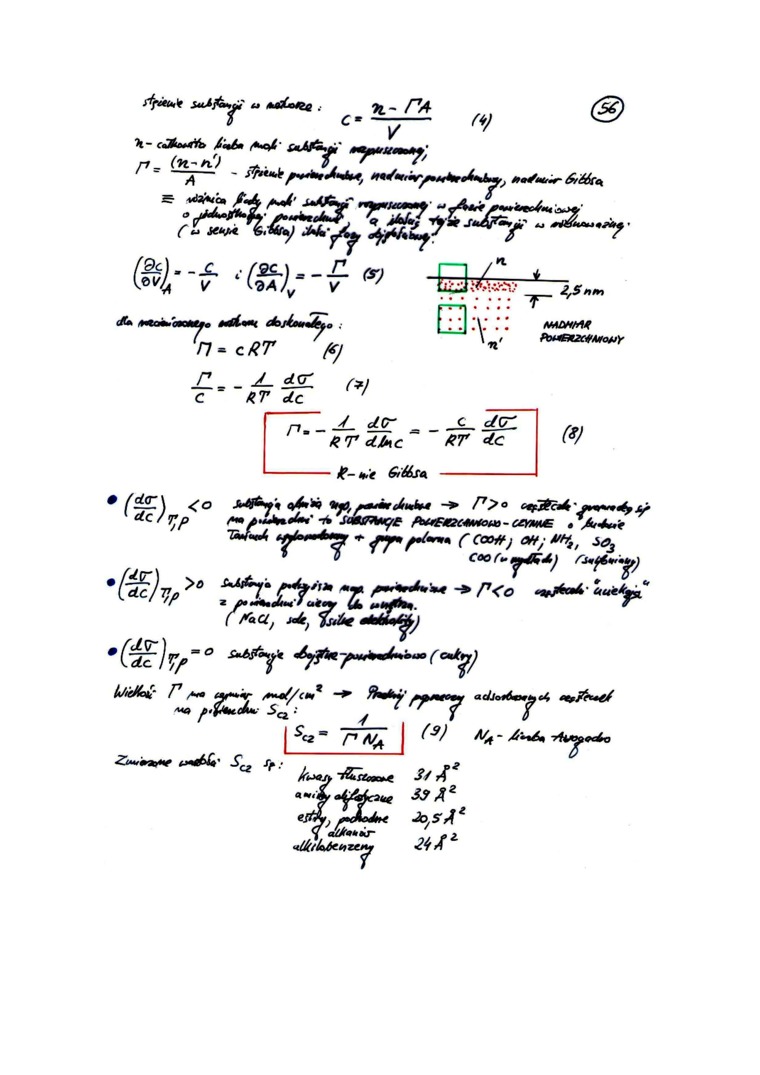 stężenie substancji w roztworze: C = (n - ΓA)/V (4) 56
n - całkowita liczba moli substancji rozpuszczonej;
Γ = (n-n')/A - stężenie powierzchniowe, nadmiar powierzchniowy, nadmiar Gibbsa
≡ różnica liczby moli substancji rozpuszczonej w fazie powierzchniowej
o jednostkowej powierzchni, a ilością tejże substancji w równoważnej
(w sensie Gibbsa) ilości fazy objętościowej.
(∂c/∂V)A = - c/V i (∂c/∂A)V = - Γ/V (5)
n
2,5 nm
n'
NADMIAR
POWIERZCHNIOWY
dla rozcieńczonego roztworu doskonałego:
Π = cRT (6)
Γ/c = - 1/RT dσ/dc (7)
Γ = - 1/RT dσ/dlnc = - c/RT dσ/dc (8)
R-nie Gibbsa
• (dσ/dc)T,p < 0 substancja obniża nap. powierzchniowe → Γ>0 cząsteczki gromadzą się
na powierzchni to SUBSTANCJE POWIERZCHNIOWO-CZYNNE o budowie
łańcuch węglowodorowy + grupa polarna (COOH; OH; NH2, SO3
COO (w mydłach) (sulfoniany)
• (dσ/dc)T,p > 0 substancja podwyższa nap. powierzchniowe → Γ<0 cząsteczki "uciekają"
z powierzchni cieczy do wnętrza.
(NaCl, sole, silne elektrolity)
• (dσ/dc)T,p = 0 substancje obojętne powierzchniowo (cukry)
Wielkość Γ ma wymiar mol/cm² → Przekrój poprzeczny adsorbowanych cząsteczek
na powierzchni Scz:
Scz = 1/(Γ NA) (9) NA - liczba Avogadro
Zmierzone wartości Scz sp:
kwasy tłuszczowe 31 Å²
aminy alifatyczne 39 Å²
estry, pochodne 20,5 Å²
alkanów
alkilobenzeny 24 Å²